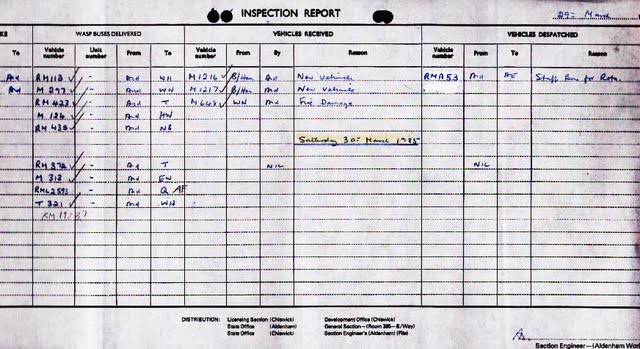 INSPECTION REPORT
29th March
KE WASP BUSES DELIVERED VEHICLES RECEIVED VEHICLES DESPATCHED
To Vehicle number Unit number From To Vehicle number From By Reason Vehicle number From To Reason
And RM 113 - And NH M1216 B/Hm And New Vehicle RMA 53 And AE Staff Bus for Rota.
And M 297 - And WN M1217 B/Hm And New Vehicle
RM 423 - And T M 648 WN And Fire Damage
M 124 - And HN
RM 436 - And NB
Saturday 30th March 1985
RM 372 - And T NIL NIL
M 313 - And EN
RML 2593 - And Q AF
T 321 - And WN
DISTRIBUTION: Licensing Section (Chiswick) Development Office (Chiswick)
Stats Office (Aldenham) General Section—(Room 395—B/Way)
Stats Office (Chiswick) Section Engineer's (Aldenham) (File)
Section Engineer—(Aldenham Wor